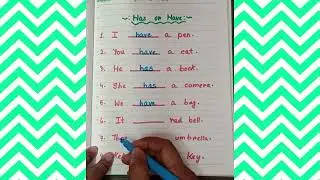 Has or Have:-
1. I have a pen.
2. You have a cat.
3. He has a book.
4. She has a camera.
5. We have a bag.
6. It ______ red bell.
7. umbrella.
Key.